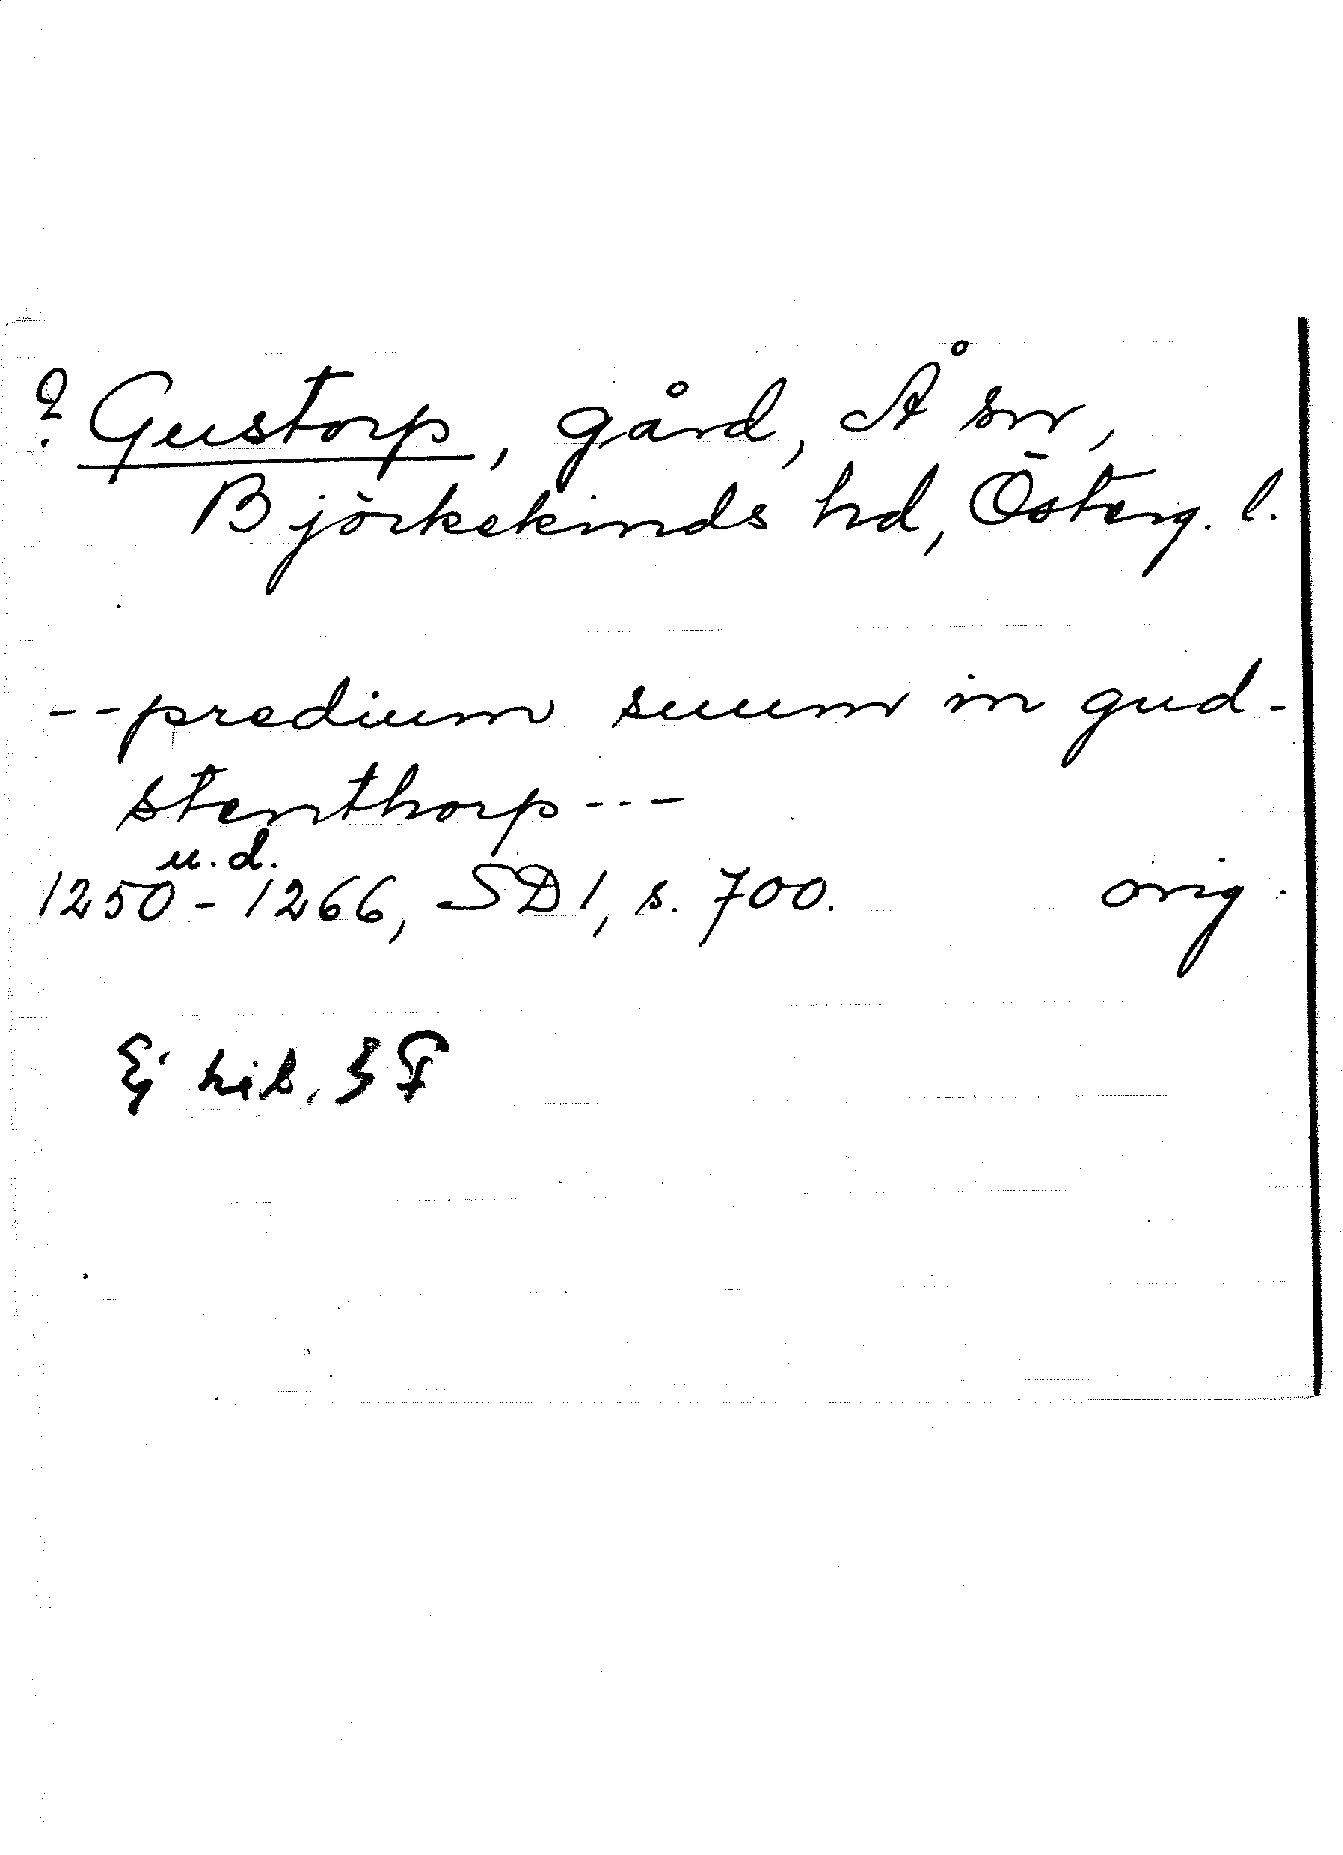 ? Gustorp, gård, Å sn,
Björkekinds hd, Österg. l.
--predium suum in gud-
stenthorp ---
u.d.
1250-1266, SD 1, s. 700. orig.
Ej